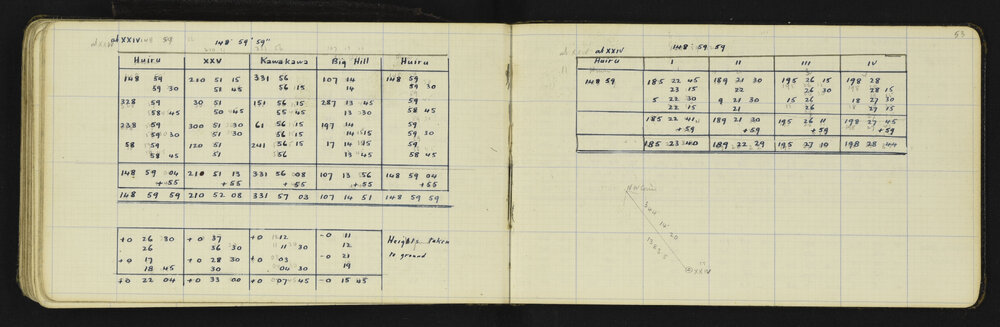 at XXIV 148° 59' 59"
Huiru XXV Kawakawa Big Hill Huiru
148 59 210 51 15 331 56 107 14 148 59
59 30 51 45 56 15 14 59 30
328 59 30 51 151 56 15 287 13 45 59
58 45 50 45 55 45 13 30 58 45
238 59 300 51 30 61 56 15 197 14 59
59 30 51 30 56 15 14 15 59 30
58 59 120 51 241 56 15 17 14 15 59
58 45 51 56 13 45 58 45
148 59 04 210 51 13 331 56 08 107 13 56 148 59 04
+55 +55 +55 +55 +55
148 59 59 210 52 08 331 57 03 107 14 51 148 59 59
+0 26 30 +0 37 +0 12 -0 11 Heights taken
26 36 30 11 30 12 to ground
+0 17 +0 28 30 +0 03 -0 21
18 45 30 04 30 19
+0 22 04 +0 33 00 +0 07 45 -0 15 45
53
at XXIV 148 59 59
Huiru I II III IV
148 59 185 22 45 189 21 30 195 26 15 198 28
23 15 22 26 30 28 15
5 22 30 9 21 30 15 26 18 27 30
22 15 21 26 27 15
185 22 41 189 21 30 195 26 11 198 27 45
+59 +59 +59 +59
185 23 40 189 22 29 195 27 10 198 28 44
344 14 20
XXIV